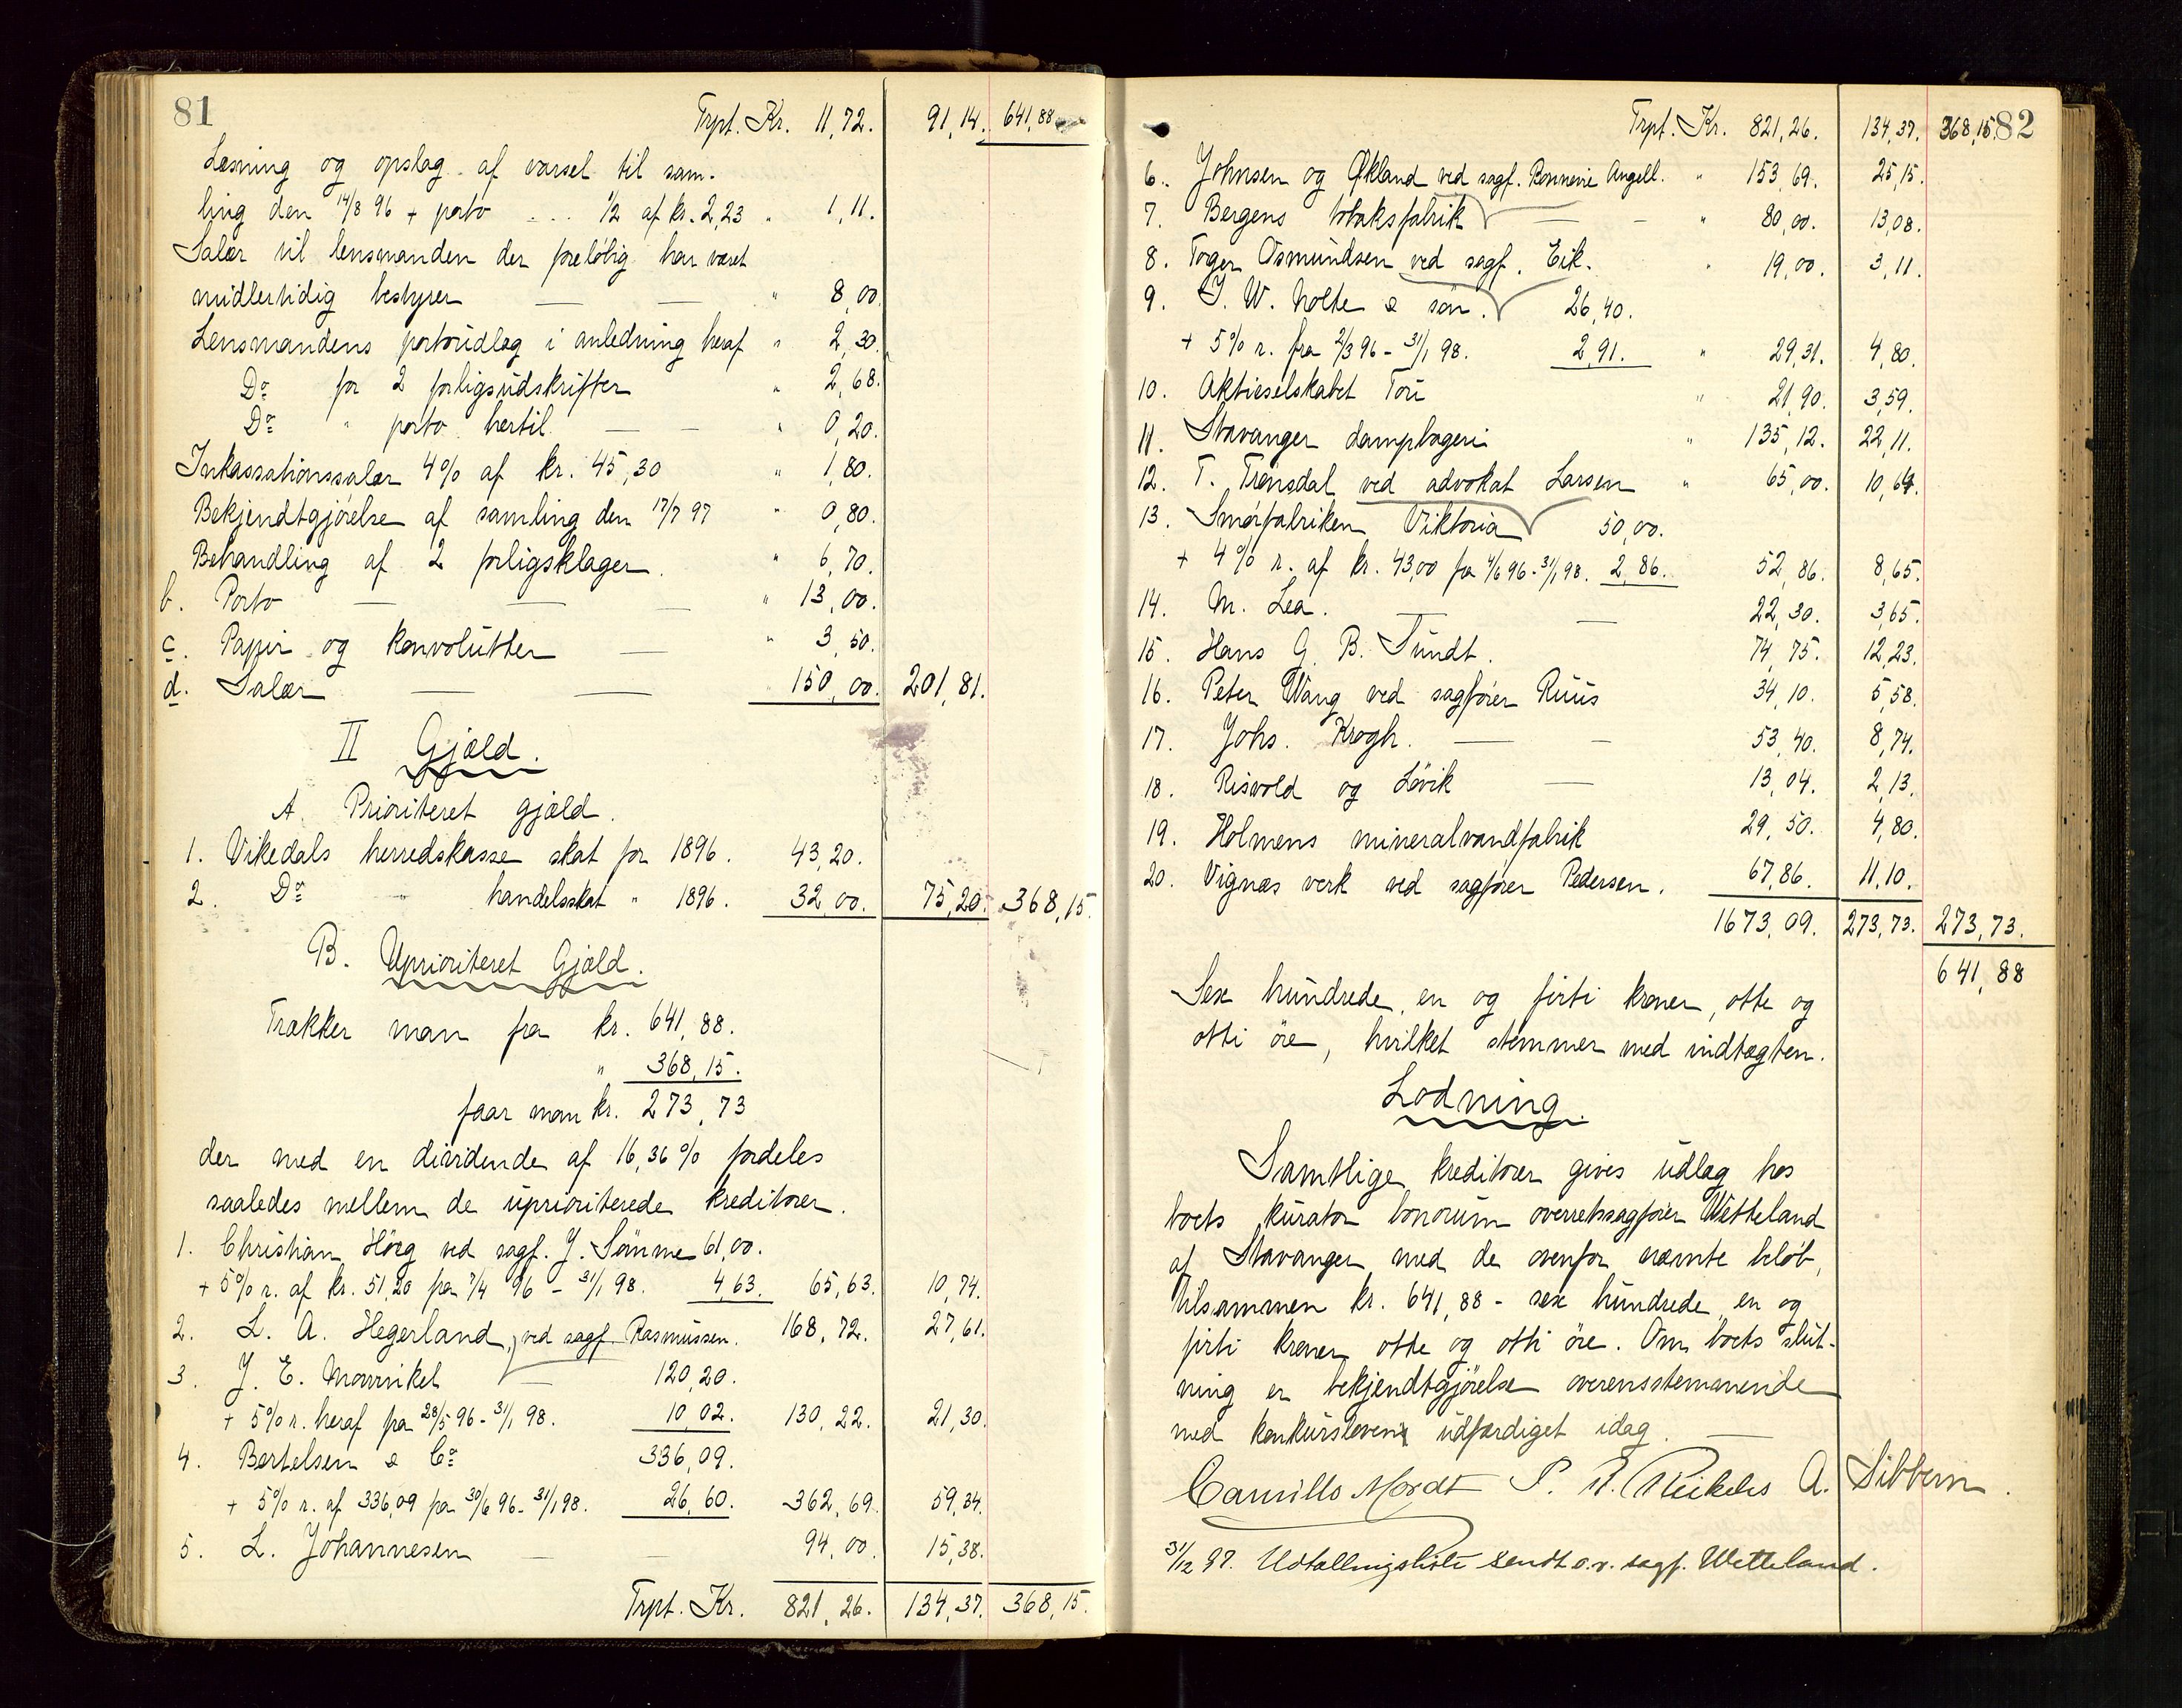 81
Trpt. Kr. 11,72. 91,14. 641,88
Læsning og opslag af varsel til sam-
ling den 14/8 96 + porto ... 1/2 af kr. 2,23 " 1,11.
Salær til lensmanden der foreløbig har været
midlertidig bestyrer — — " 8,00.
Lensmandens portoudlæg i anledning heraf " 2,30.
Do for 2 forligsudskrifter " 2,68.
Do " porto hertil — — " 0,20.
Inkassationssalær 4% af kr. 45,30 " 1,80.
Bekjendtgjørelse af samling den 17/7 97 " 0,80.
Behandling af 2 forligsklager. " 6,70.
b. Porto — — — " 13,00.
c. Papir og konvolutter — " 3,50.
d. Salær — — " 150,00. 201,81.
II Gjæld.
A. Prioriteret gjæld.
1. Vikedals herredskasse skat for 1896. 43,20.
2. Do " handelsskat " 1896. 32,00. 75,20. 368,15.
B. Uprioriteret Gjæld.
Trækker man fra kr. 641,88.
" 368,15.
faar man kr. 273,73
der med en dividende af 16,36% fordeles
saaledes mellem de uprioriterede kreditorer.
1. Christian Høeg ved sagf. J. Sömme 61,00.
+ 5% r. af kr. 51,20 fra 7/4 96 - 31/1 98. 4,63. 65,63. 10,74.
2. L. A. Hegerland, ved sagf. Rasmussen. 168,72. 27,61.
3. J. E. Mowinkel — 120,20.
+ 5% r. heraf fra 28/5 96 - 31/1 98. 10,02. 130,22. 21,30.
4. Bertelsen & Co 336,09.
+ 5% r. af 336,09 fra 30/6 96 - 31/1 98. 26,60. 362,69. 59,34.
5. L. Johannesen — — 94,00. 15,38.
Trpt. Kr. 821,26. 134,37. 368,15.
82
Trpt. Kr. 821,26. 134,37. 368,15.
6. Johnsen og Økland ved sagf. Ronnevie Angell. " 153,69. 25,15.
7. Bergens tobaksfabrik — — " 80,00. 13,08.
8. Toger Osmundsen ved sagf. Eik. " 19,00. 3,11.
9. J. W. Holte & søn. 26,40.
+ 5% r. fra 2/3 96 - 31/1 98. 2,91. " 29,31. 4,80.
10. Aktieselskabet Tou " 21,90. 3,59.
11. Stavanger dampbageri " 135,12. 22,11.
12. T. Trønsdal ved advokat Larsen " 65,00. 10,64.
13. Smørfabriken Viktoria 50,00.
+ 4% r. af kr. 43,00 fra 4/6 96 - 31/1 98. 2,86. 52,86. 8,65.
14. M. Lea. — — 22,30. 3,65.
15. Hans G. B. Sundt. 74,75. 12,23.
16. Peter Wang ved sagfører Ruus 34,10. 5,58.
17. Johs. Krogh. — — 53,40. 8,74.
18. Risvold og Løvik — 13,04. 2,13.
19. Holmens mineralvandfabrik 29,50. 4,80.
20. Vignæs verk ved sagfører Pedersen. 67,86. 11,10.
1673,09. 273,73. 273,73.
641,88
Sex hundrede, en og firti kroner, otte og
otti øre, hvilket stemmer med indtægten.
Lodning.
Samtlige kreditorer gives udlæg hos
boets kurator bonorum overretssagfører Wetteland
af Stavanger med de ovenfor nævnte beløb,
tilsammen kr. 641,88 - sex hundrede, en og
firti kroner otte og otti øre. Om boets slut-
ning er bekjendtgjørelse overensstemmende
med konkursloven udfærdiget idag. —
Camillo Mordt A. Sibbern.
31/12 97. Udtallingsliste sendt o.r. sagf. Wetteland.